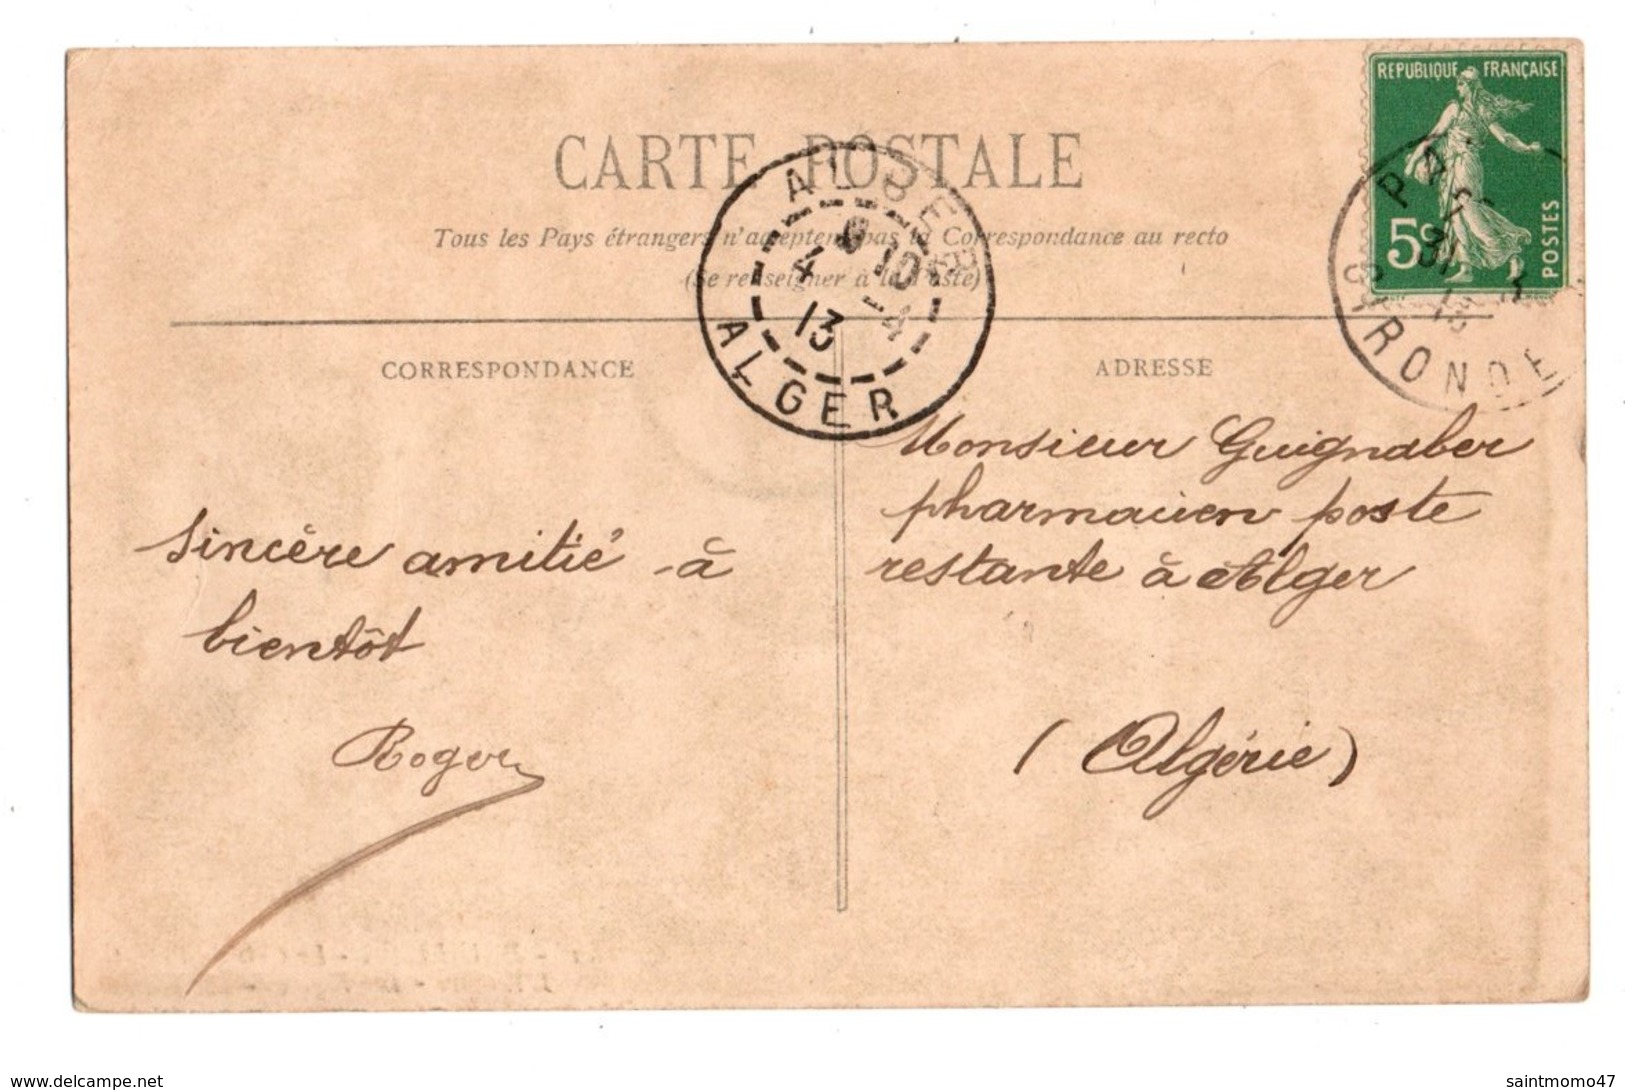 CARTE POSTALE
Tous les Pays étrangers n'acceptent pas la Correspondance au recto
(Se renseigner à la Poste)
REPUBLIQUE FRANÇAISE
5c
POSTES
GIRONDE
31
ALGER
ALGER
10
4 -4
13
CORRESPONDANCE
ADRESSE
Sincère amitié à
bientôt
Roger
Monsieur Guignaber
pharmacien poste
restante à Alger
(Algérie)
www.delcampe.net
saintmomo47